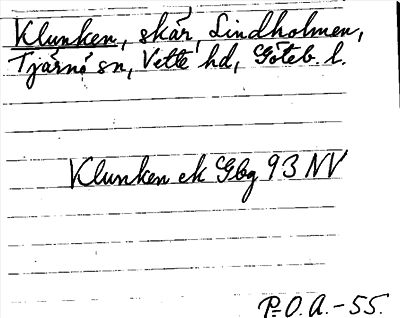 Klunken, skär, Lindholmen,
Tjärnö sn, Vette hd, Göteb. l.
Klunken ek Gbg 93 NV
P.O.A.-55.